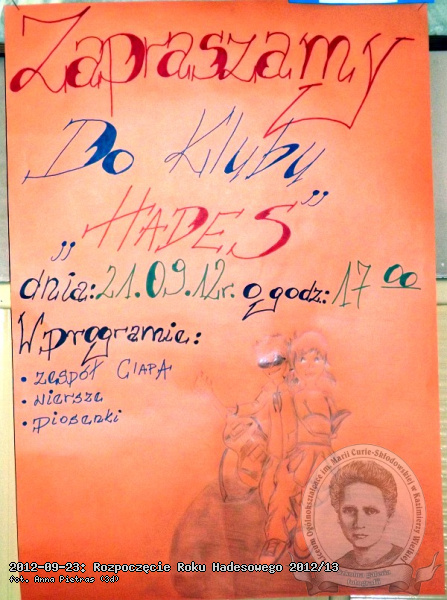 Zapraszamy
Do Klubu
„HADES”
dnia: 21.09.12r. o godz: 17 00
W programie:
• zespół CIAPA
• wiersze
• piosenki
Liceum Ogólnokształcące im. Marii Curie-Skłodowskiej w Kazimierzy Wielkiej
2012-09-23: Rozpoczęcie Roku Hadesowego 2012/13
fot. Anna Pietras (3d)